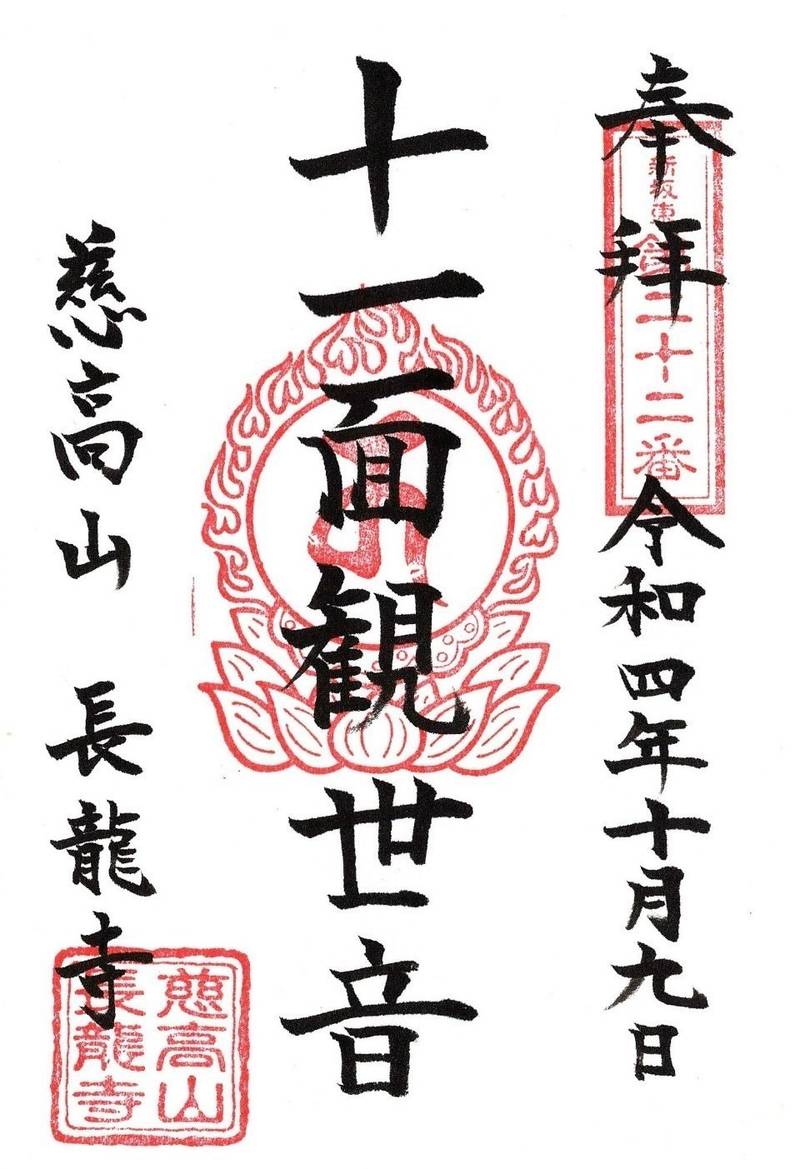 奉拝
新坂東
第三十二番
令和四年十月九日
十一面観世音
慈高山 長龍寺
慈高山
長龍寺